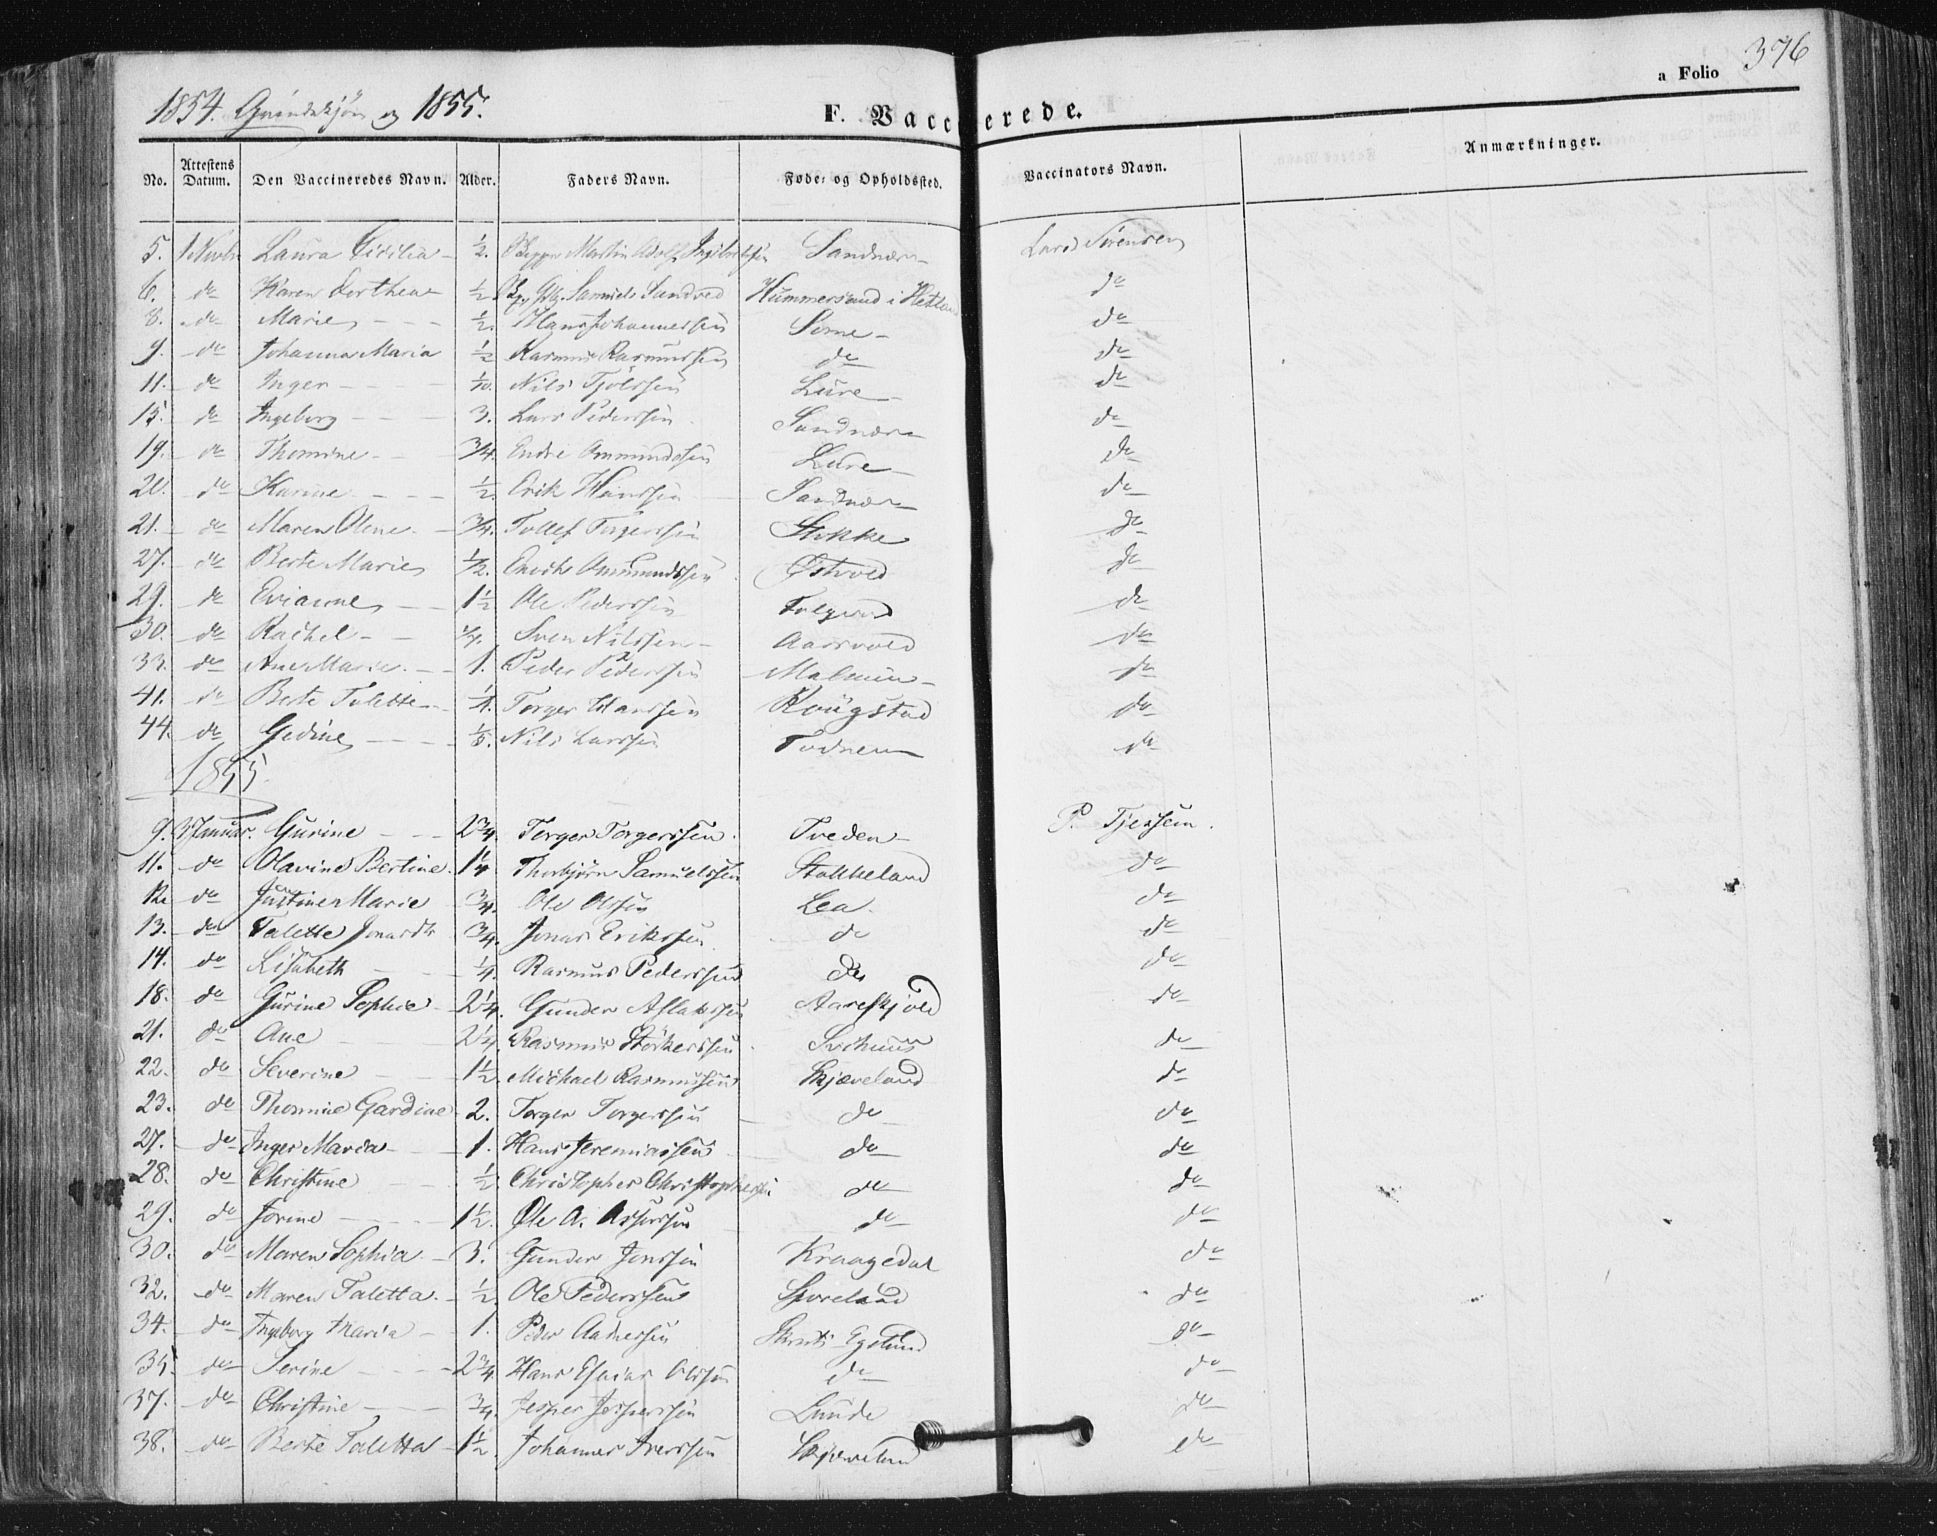 1854. Qvindekjøn og 1855.
F. Vaccinerede.
a Folio 376
No. Attestens Datum. Den Vaccineredes Navn. Alder. Faders Navn. Føde- og Opholdssted. Vaccinators Navn. Anmærkninger.
5. 1 Novbr Laura Cicilia ½. Martin Adolf Sandnæs Lars Sørensen
6. do Karen Dorthea ½ Samuels Sandved Hummersand i Hetland do
8. do Marie ½. Hans Johannessen Some do
9. do Johanna Maria ½ Rasmus Rasmussen do do
11. do Inger 1/10. Nils Tjölssen Lure do
15. do Ingeborg 3. Lars Pederssen Sandnæs do
19. do Thomine ¾. Endre Ommundssen Lure do
20. do Karine ½. Erik Hanssen Sandnæs do
21. do Maren Oline ¾. Tollef Torgerssen Stokke do
27. do Berte Marie ½. Ommundssen Østvold do
29. do 1½ Ole Pederssen do
30. do Rachel Sven Nilssen Aarsvold do
33. do Ane Marie 1. Peder Pederssen Malmin do
41. do Berte Talette ¼. Torger Hanssen Kougstad do
44. do Gedine 1/5. Nils Larssen Todnem do
1855.
9. 3 Januar. Gurine 2¾. Torger Torgerssen Tveden P. Tjessem.
11. do Olavine Bertine 1¼ Thorbjørn Samuelssen Stokkeland do
12. do Justine Marie ¾. Ole Olssen Lea. do
13. do Talette Jonasdtr ¾. Jonas Erikssen do do
14. do Lisabeth ¼. Rasmus Pederssen do do
18. do Gurine Sophie 2¼. Gunder Aslakssen Aareskjold do
21. do Ane 2¼. Rasmus Störkerssen do
22. do Severine 1½. Michael Rasmussen Skjæveland do
23. do Thomine Gardine 2. Torger Torgerssen do do
27. do Inger Maria 1. Hans Jeremiassen do do
28. do Christine ½. Christopher Christopherssen do do
29. do Jorine 1½. Ole A. Asserssen do do
30. do Maren Sophia 3. Gunder Jonssen Kraagedal do
32. do Maren Taletta ½. Ole Pederssen do
34. do Ingeborg Maria 1. Peder Aadnessen Egeland do
35. do Serine 2¾. Hans Esaias Olssen do do
37. do Christine ¾. Jesper Jesperssen Lunde do
38. do Berte Taletta 1½. Johannes Iverssen Skjæveland do